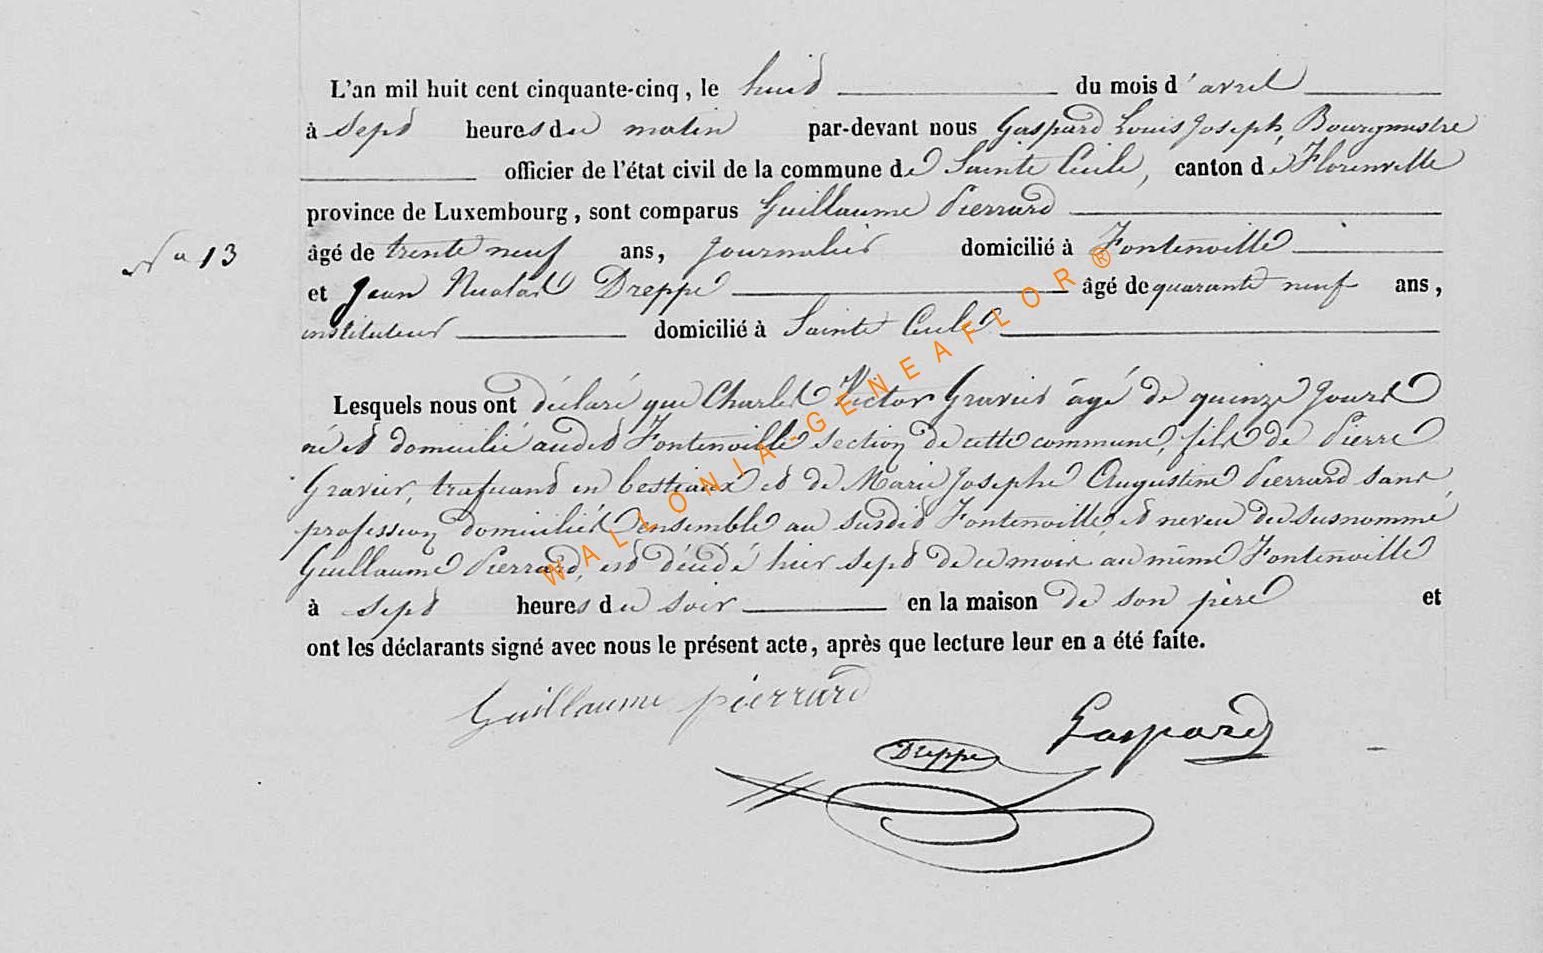 L'an mil huit cent cinquante-cinq, le huit du mois d'avril
à sept heures du matin par-devant nous Gaspard Louis Joseph, Bourgmestre
officier de l'état civil de la commune de Sainte Cécile, canton de Florenville
province de Luxembourg, sont comparus Guillaume Pierrard
N° 13
âgé de trente neuf ans, journalier domicilié à Fontenoille
et Jean Nicolas Dreppe âgé de quarante neuf ans,
instituteur domicilié à Sainte Cécile
Lesquels nous ont déclaré que Charles Victor Gravier âgé de quinze jours
né et domicilié audit Fontenoille section de cette commune, fils de Pierre
Gravier, trafiquant en bestiaux et de Marie Josephe Augustine Pierrard sans
profession domiciliés ensemble au susdit Fontenoille, et neveu du susnommé
Guillaume Pierrard, est décédé hier sept de ce mois au même Fontenoille
à sept heures du soir en la maison de son père et
ont les déclarants signé avec nous le présent acte, après que lecture leur en a été faite.
Guillaume pierrard
Gaspard
Dreppe
WALLONIA-GENEAFLOR®